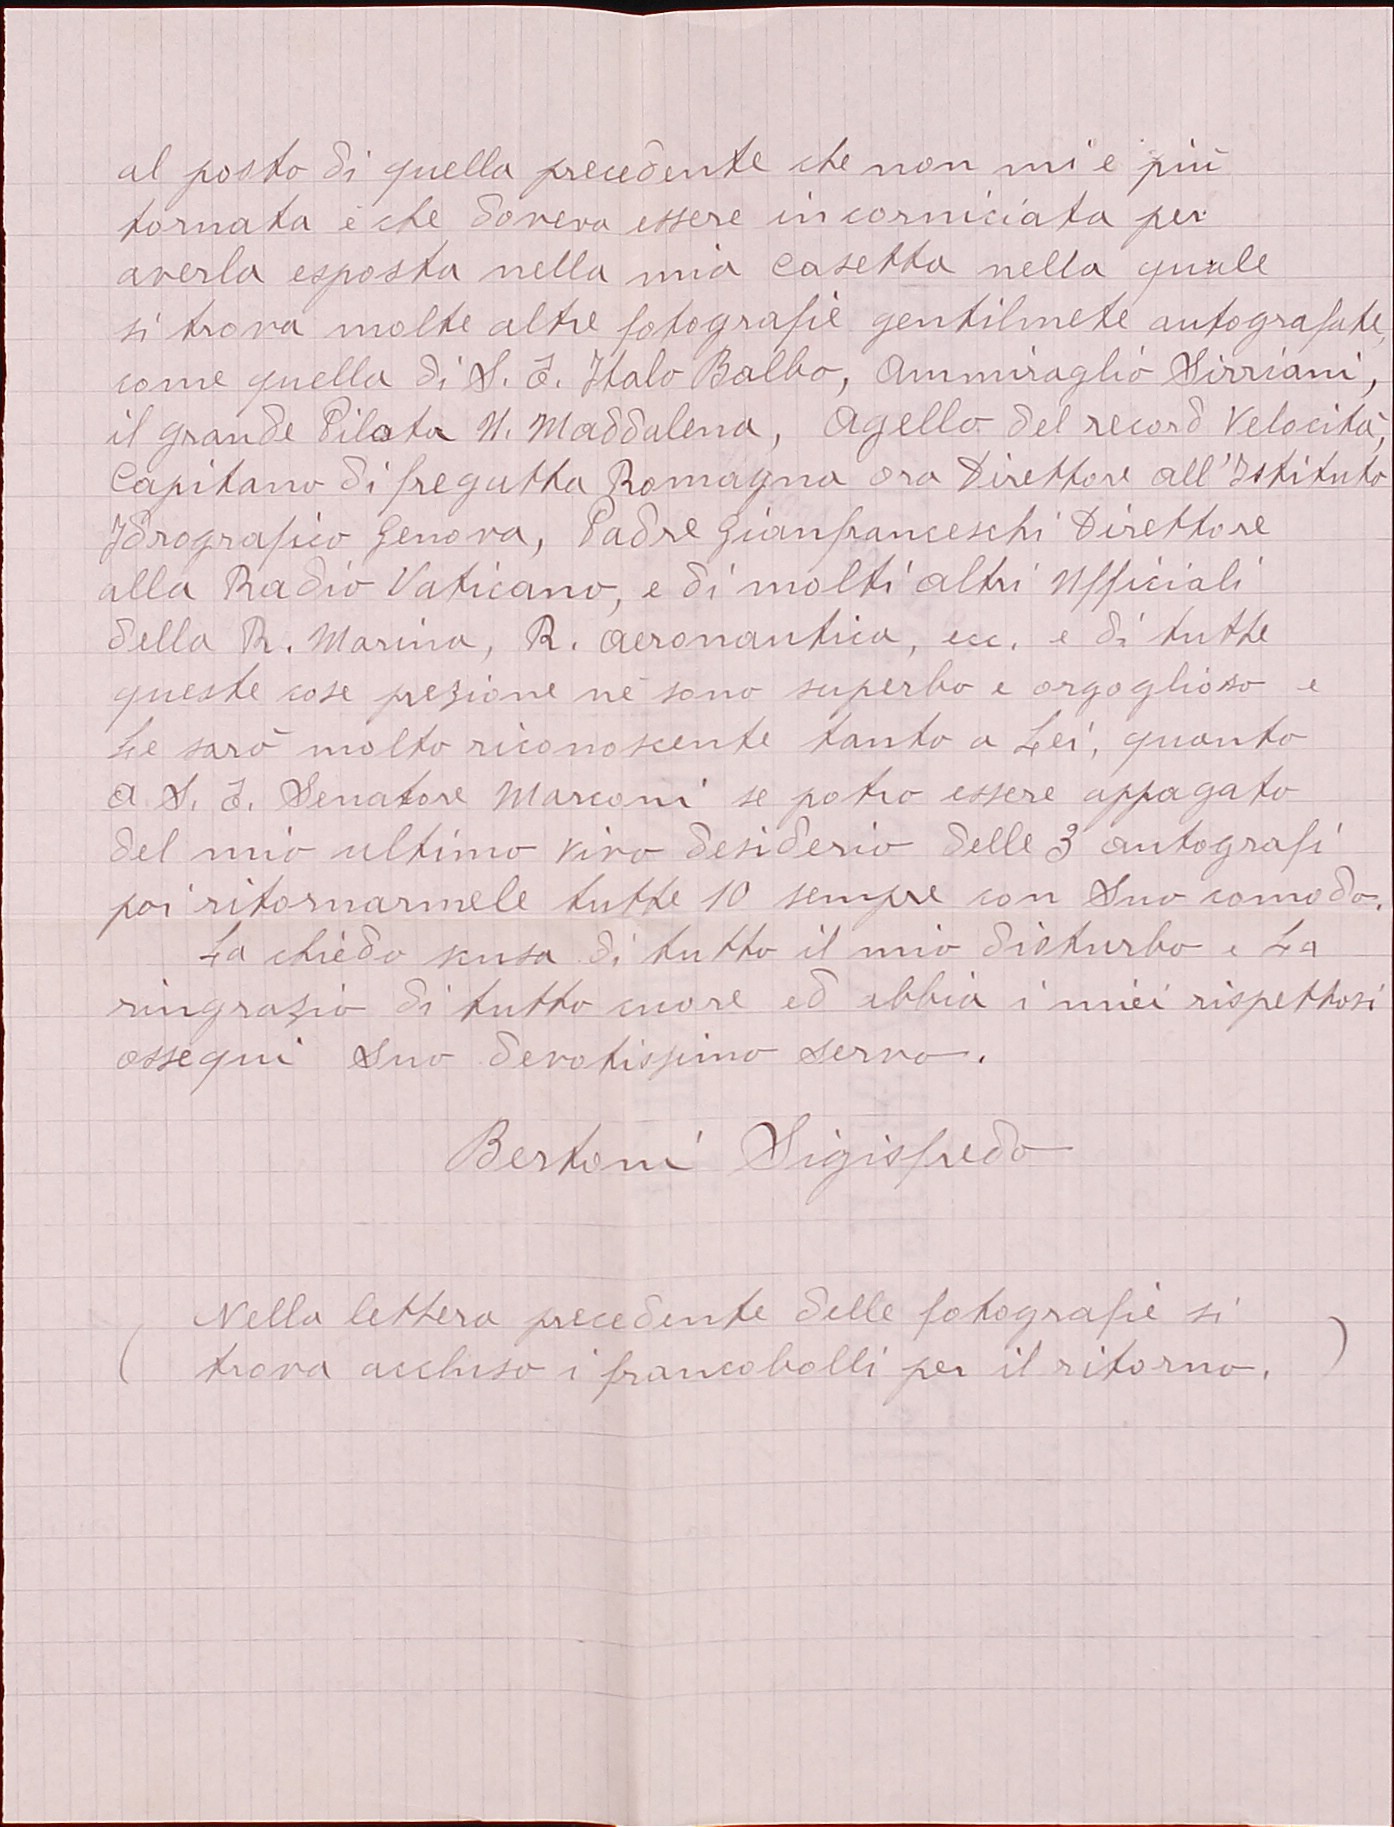 al posto di quella precedente che non mi è più
tornata e che doveva essere incorniciata per
averla esposta nella mia casetta nella quale
si trova molte altre fotografie gentilmete autografate,
come quella di S. E. Italo Balbo, Ammiraglio Sirriani,
il grande Pilota U. Maddalena, Agello del record Velocità,
Capitano di fregatta Romagna ora Direttore all'Istituto
Idrografico Genova, Padre Gianfranceschi Direttore
alla Radio Vaticano, e di molti altri Ufficiali
della R. Marina, R. Aeronautica, ecc. e di tutte
queste cose prezione ne sono superbo e orgoglioso e
Le sarò molto riconoscente tanto a Lei, quanto
a S. E. Senatore Marconi se potro essere appagato
del mio ultimo vivo desiderio delle 3 autografi
poi ritornarmele tutte 10 sempre con Suo comodo.
La chiedo scusa di tutto il mio disturbo e La
ringrazio di tutto cuore ed abbia i miei rispettosi
ossequi Suo devotissimo servo.
Bertoni Sigisfredo
( Nella lettera precedente delle fotografie si
trova acchiso i francobolli per il ritorno. )